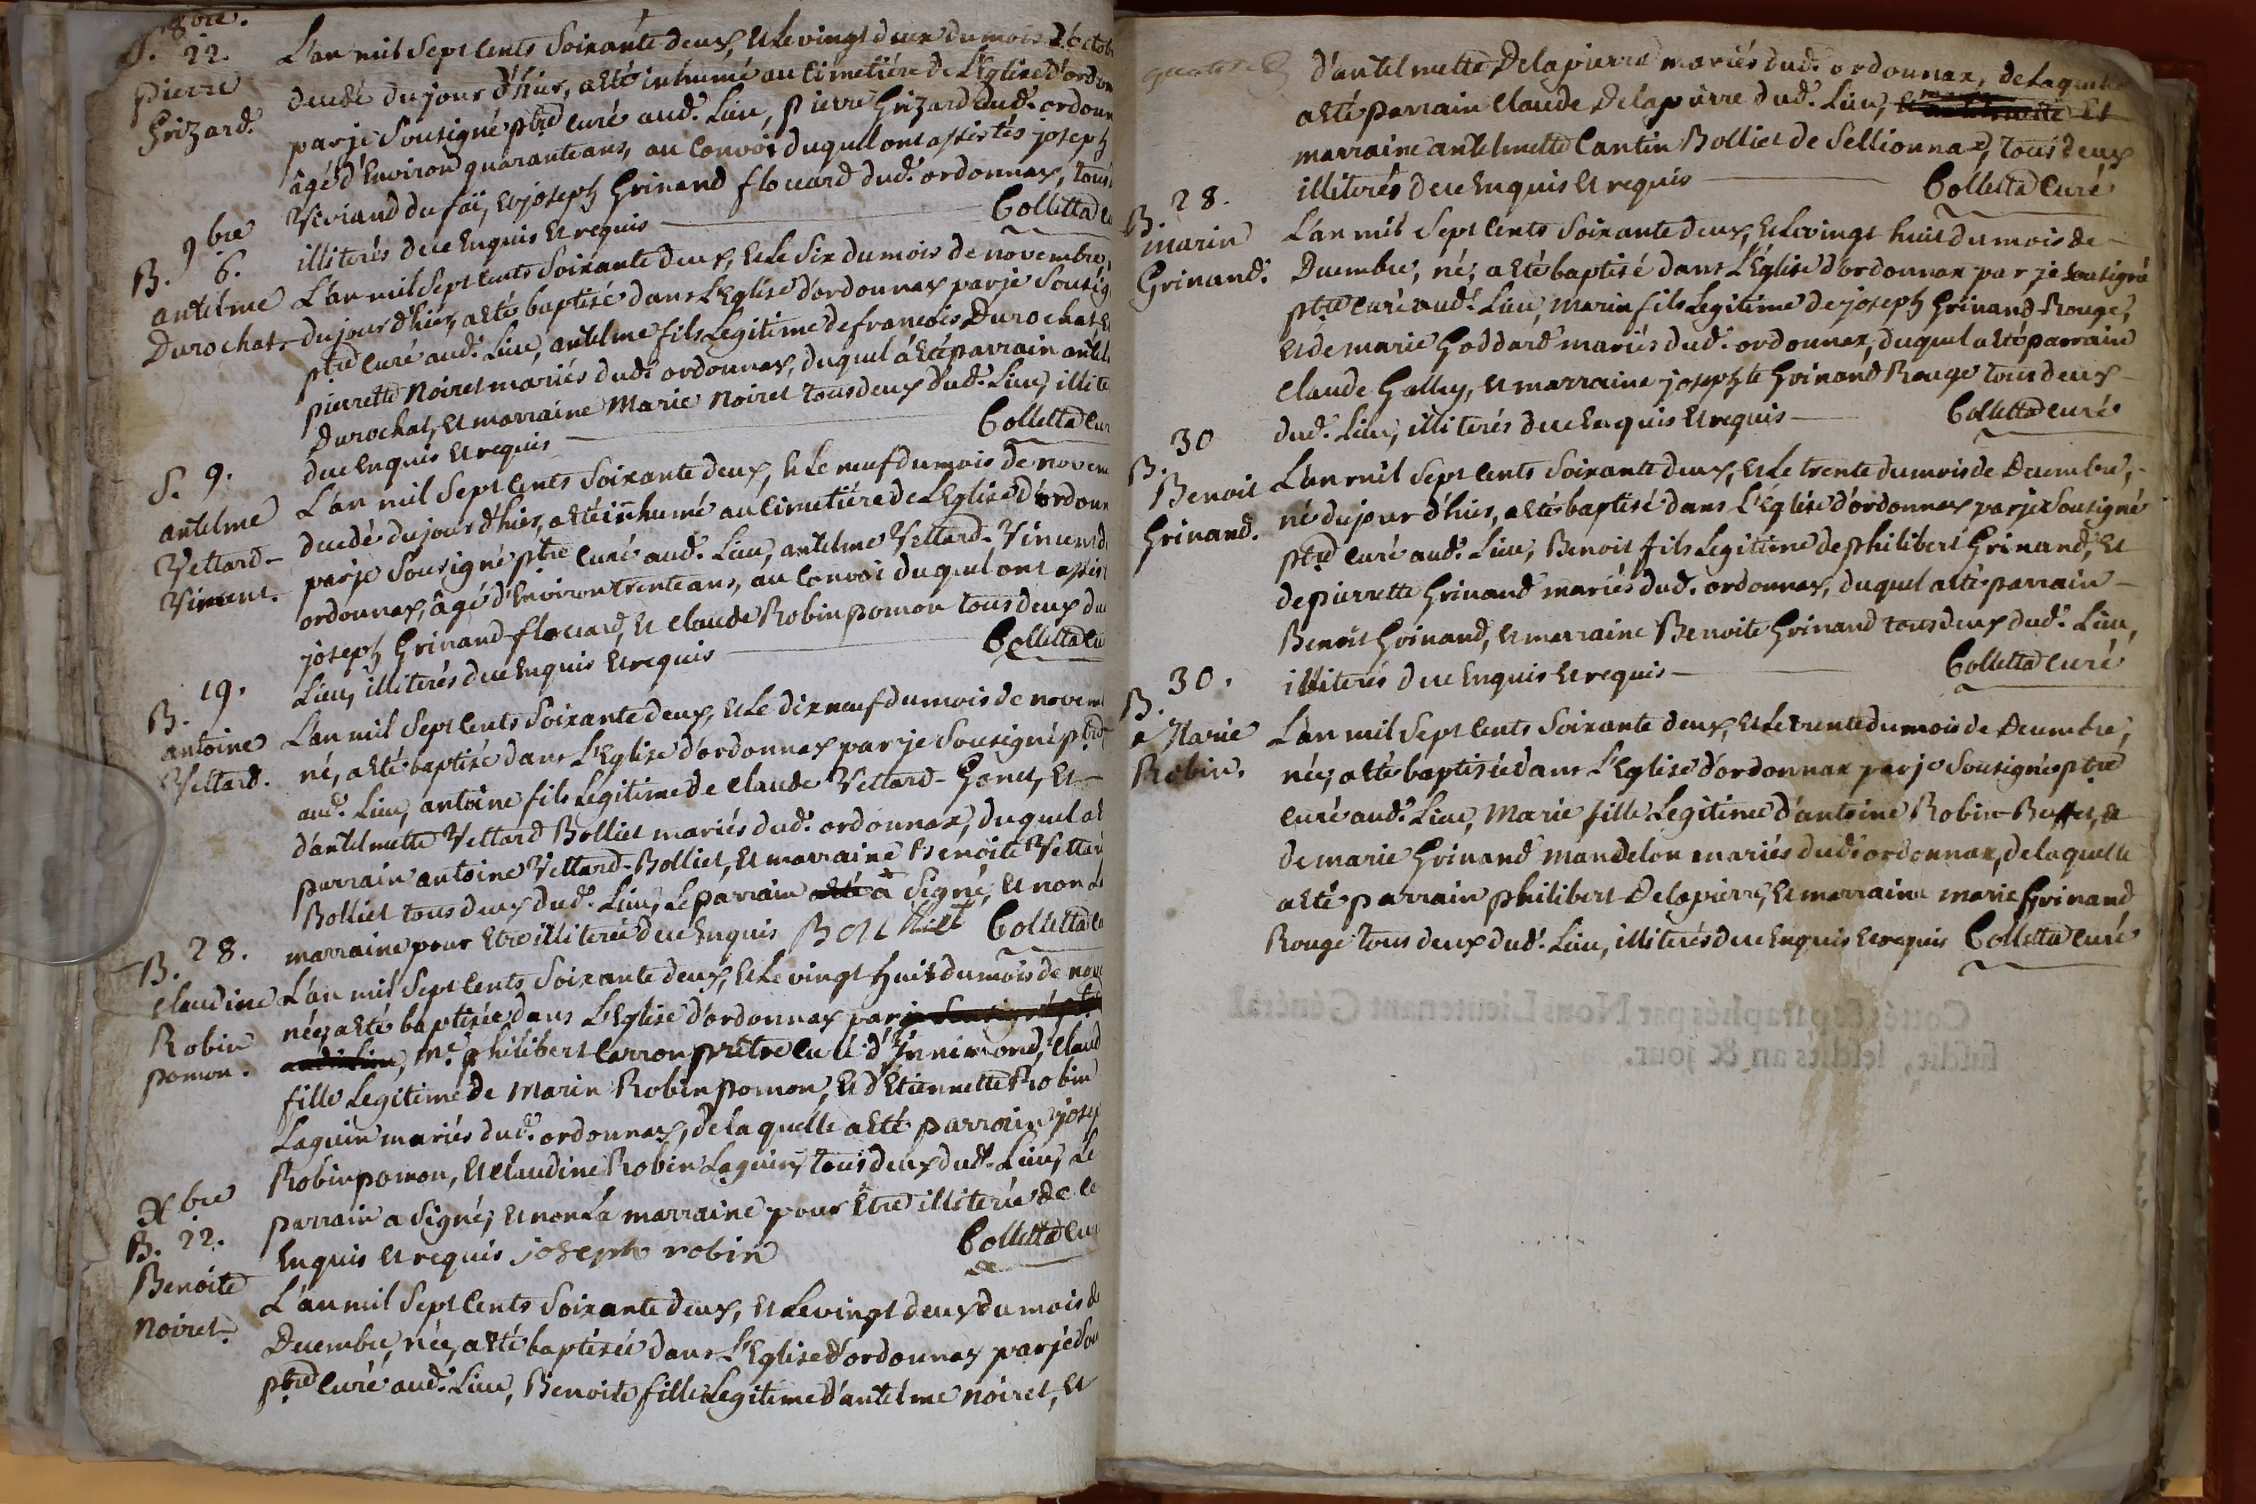 8bre.
S. 22.
Pierre
Grizard.
L'an mil sept cents soixante deux, et le vingt deux du mois d'octob
decedé du jour d'hier, a eté inhumé au cimetiére de l'Eglise d'ordon
par je sousigné ptre curé aud. lieu, pierre Grizard dud. ordonn
âgé d'environ quarante ans, au convoi duquel ont assistés joseph
Viviand du faï, et joseph Grinand flocard dud. ordonnax, tous
illiterés de ce enquis et requis Colletta cu
9bre
B. 6.
antelme
Durochat.
L'an mil sept cents soixante deux, et le six du mois de novembre,
du jour d'hier, a eté baptisé dans l'Eglise d'ordonnax par je sousig
ptre curé aud. lieu, antelme fils legitime de francois Durochat, et
pierrette Noiret mariés dud. ordonnax, duquel á eté parrain antel
Durochat, et marraine Marie Noiret tous deux dud. lieu, illite
de ce enquis et requis Colletta cur
S. 9.
antelme
Vettard-
Vincent.
L'an mil sept cents soixante deux, et le neuf du mois de novem
decedé du jour d'hier, a eté inhumé au cimetiére de l'Eglise d'ordonn
par je sousigné ptre curé aud. lieu, antelme Vettard-Vincent d
ordonnax, âgé d'environ trente ans, au convoi duquel ont assist
joseph Grinand-flocard, et claude Robin pomon tous deux du
lieu, illiterés de ce enquis et requis Colletta cu
B. 19.
antoine
Vettard.
L'an mil sept cents soixante deux, et le dix neuf du mois de novem
né, a eté baptisé dans l'Eglise d'ordonnax par je sousigné ptre
aud. lieu, antoine fils legitime de claude Vettard-Gonet, et
d'antelmette Vettard Bolliet mariés dud. ordonnax, duquel a et
parrain antoine Vettard-Bolliet, et marraine Benoite Vettar
Bolliet tous deux dud. lieu, le parrain eté a signé, et non l
marraine pour etre illiterée de ce enquis Colletta c
B. 28.
claudine
Robin
pomon.
L'an mil sept cents soixante deux, et le vingt huit du mois de nov
née, a eté baptisée dans l'Eglise d'ordonnax par je sousigné ptre
aud. lieu, me philibert carron prêtre curé d'Innimond, claud
fille legitime de Marin Robin pomon, et d'Etiennette Robin
Laguin mariés dud. ordonnax, de laquelle a eté parrain josep
Robin pomon, et claudine Robin Laguin, tous deux dud. lieu, le
parrain a signé, et non la marraine pour être illiterée de ce
enquis et requis joseph robin Colletta cur
Xbre
B. 22.
Benoite
Noiret.
L'an mil sept cents soixante deux, et le vingt deux du mois d
Decembre, née, a eté baptisée dans l'Eglise d'ordonnax par je sou
ptre curé aud. lieu, Benoite fille legitime d'antelme Noiret, et
d'antelmette Delapierre mariés dud. ordonnax, de laquelle
a eté parrain claude Delapierre dud. lieu, et
marraine antelmette Cantin Bolliet de Sellionnaz, tous deux
illiterés de ce enquis et requis Colletta curé
B. 28.
Marin
Grinand.
L'an mil sept cents soixante deux, et le vingt huit du mois de
Decembre, né, a eté baptisé dans l'Eglise d'ordonnax par je sousigné
ptre curé aud. lieu, Marin fils legitime de joseph Grinand-Rouge,
et de marie Goddard mariés dud. ordonnax, duquel a eté parrain
claude Galley, et marraine josephte Grinand Rouge tous deux
dud. lieu, illiterés de ce enquis et requis Colletta curé
B. 30
Benoit
Grinand.
L'an mil sept cents soixante deux, et le trente du mois de Decembre,
né du jour d'hier, a eté baptisé dans l'Eglise d'ordonnax par je sousigné
ptre curé aud. lieu, Benoit fils legitime de philibert Grinand, et
de pierrette Grinand mariés dud. ordonnax, duquel a eté parrain
Benoit Grinand, et marraine Benoite Grinand tous deux dud. lieu,
illiterés de ce enquis et requis Colletta curé
B. 30.
Marie
Robin.
L'an mil sept cents soixante deux, et le trente du mois de Decembre,
née, a eté baptisée dans l'Eglise d'ordonnax par je sousigné ptre
curé aud. lieu, Marie fille legitime d'antoine Robin-Buffet, et
de marie Grinand Mandelon mariés dud. ordonnax, de laquelle
a eté parrain philibert Delapierre, et marraine marie Grinand
Rouge tous deux dud. lieu, illiterés de ce enquis et requis Colletta curé
Cottés & paraphés par Nous Lieutenant Général
susdit, lesdits an & jour.